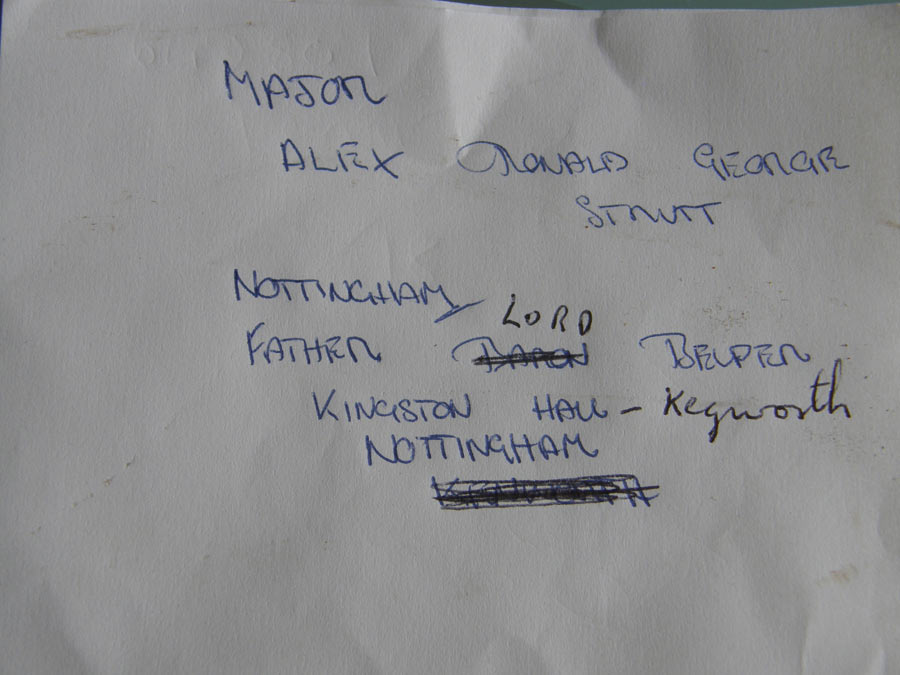 MAJOR
ALEX RONALD GEORGE
STRUTT
NOTTINGHAM
LORD
FATHER BARON BELPER
KINGSTON HALL - Kegworth
NOTTINGHAM